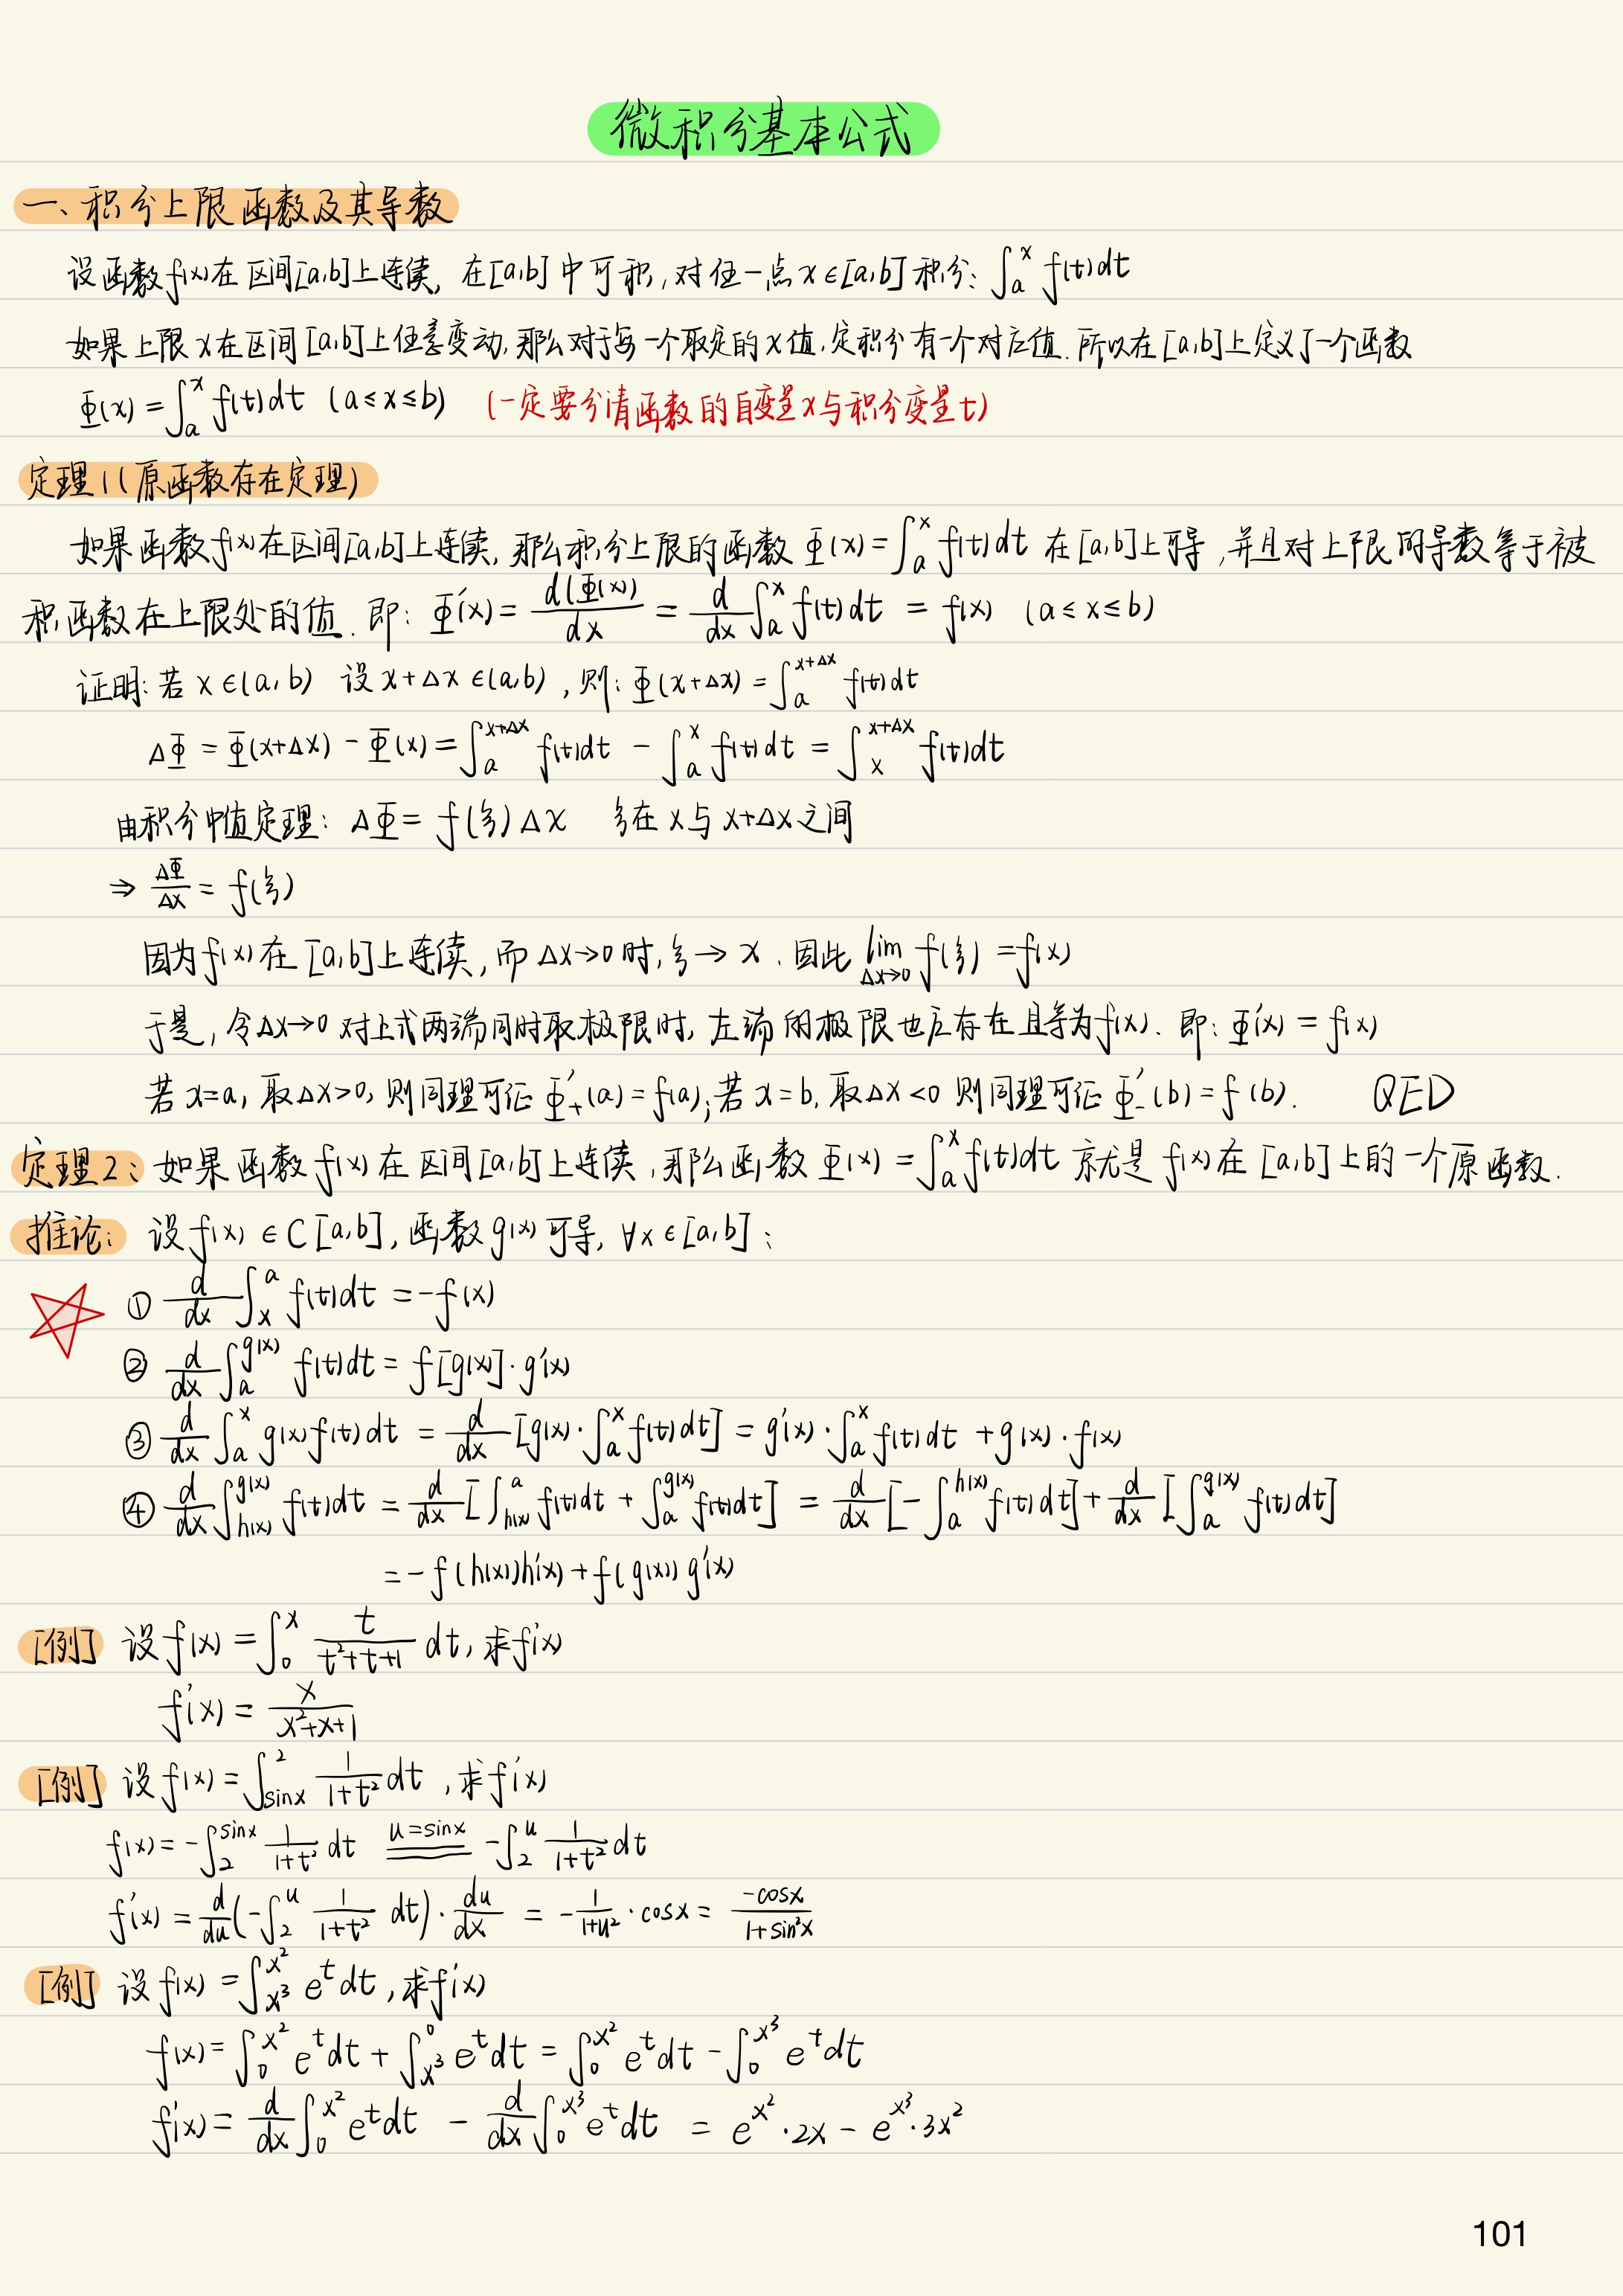 微积分基本公式
一、积分上限函数及其导数
设函数f(x)在区间[a,b]上连续, 在[a,b]中可积,对任一点x∈[a,b]积分: ∫_a^x f(t)dt
如果上限x在区间[a,b]上任意变动,那么对于每一个取定的x值,定积分有一个对应值.所以在[a,b]上定义了一个函数
Φ(x)=∫_a^x f(t)dt (a≤x≤b) (一定要分清函数的自变量x与积分变量t)
定理1(原函数存在定理)
如果函数f(x)在区间[a,b]上连续,那么积分上限的函数Φ(x)=∫_a^x f(t)dt在[a,b]上可导,并且对上限的导数等于被
积函数在上限处的值.即: Φ'(x)=d(Φ(x))/dx=d/dx∫_a^x f(t)dt=f(x) (a≤x≤b)
证明:若x∈(a,b) 设x+Δx∈(a,b),则: Φ(x+Δx)=∫_a^{x+Δx} f(t)dt
ΔΦ=Φ(x+Δx)-Φ(x)=∫_a^{x+Δx} f(t)dt-∫_a^x f(t)dt=∫_x^{x+Δx} f(t)dt
由积分中值定理: ΔΦ=f(ξ)Δx ξ在x与x+Δx之间
⇒ΔΦ/Δx=f(ξ)
因为f(x)在[a,b]上连续,而Δx→0时,ξ→x.因此lim_{Δx→0} f(ξ)=f(x)
于是,令Δx→0对上式两端同时取极限时,左端的极限也应存在且等为f(x).即:Φ'(x)=f(x)
若x=a,取Δx>0,则同理可证Φ'₊(a)=f(a);若x=b,取Δx<0则同理可证Φ'₋(b)=f(b). QED
定理2:如果函数f(x)在区间[a,b]上连续,那么函数Φ(x)=∫_a^x f(t)dt就是f(x)在[a,b]上的一个原函数.
推论: 设f(x)∈C[a,b],函数g(x)可导,∀x∈[a,b]:
① d/dx∫_x^a f(t)dt=-f(x)
② d/dx∫_a^{g(x)} f(t)dt=f[g(x)]·g'(x)
③ d/dx∫_a^x g(x)f(t)dt=d/dx[g(x)·∫_a^x f(t)dt]=g'(x)·∫_a^x f(t)dt+g(x)·f(x)
④ d/dx∫_{h(x)}^{g(x)} f(t)dt=d/dx[∫_{h(x)}^a f(t)dt+∫_a^{g(x)} f(t)dt]=d/dx[-∫_a^{h(x)} f(t)dt]+d/dx[∫_a^{g(x)} f(t)dt]
=-f(h(x))h'(x)+f(g(x))g'(x)
[例] 设f(x)=∫_0^x t/(t²+t+1) dt,求f'(x)
f'(x)=x/(x²+x+1)
[例] 设f(x)=∫_{sinx}^2 1/(1+t²) dt,求f'(x)
f(x)=-∫_2^{sinx} 1/(1+t²) dt u=sinx -∫_2^u 1/(1+t²) dt
f'(x)=d/du(-∫_2^u 1/(1+t²) dt)·du/dx=-1/(1+u²)·cosx=-cosx/(1+sin²x)
[例] 设f(x)=∫_{x³}^{x²} e^t dt,求f'(x)
f(x)=∫_0^{x²} e^t dt+∫_{x³}^0 e^t dt=∫_0^{x²} e^t dt-∫_0^{x³} e^t dt
f'(x)=d/dx∫_0^{x²} e^t dt-d/dx∫_0^{x³} e^t dt=e^{x²}·2x-e^{x³}·3x²
101